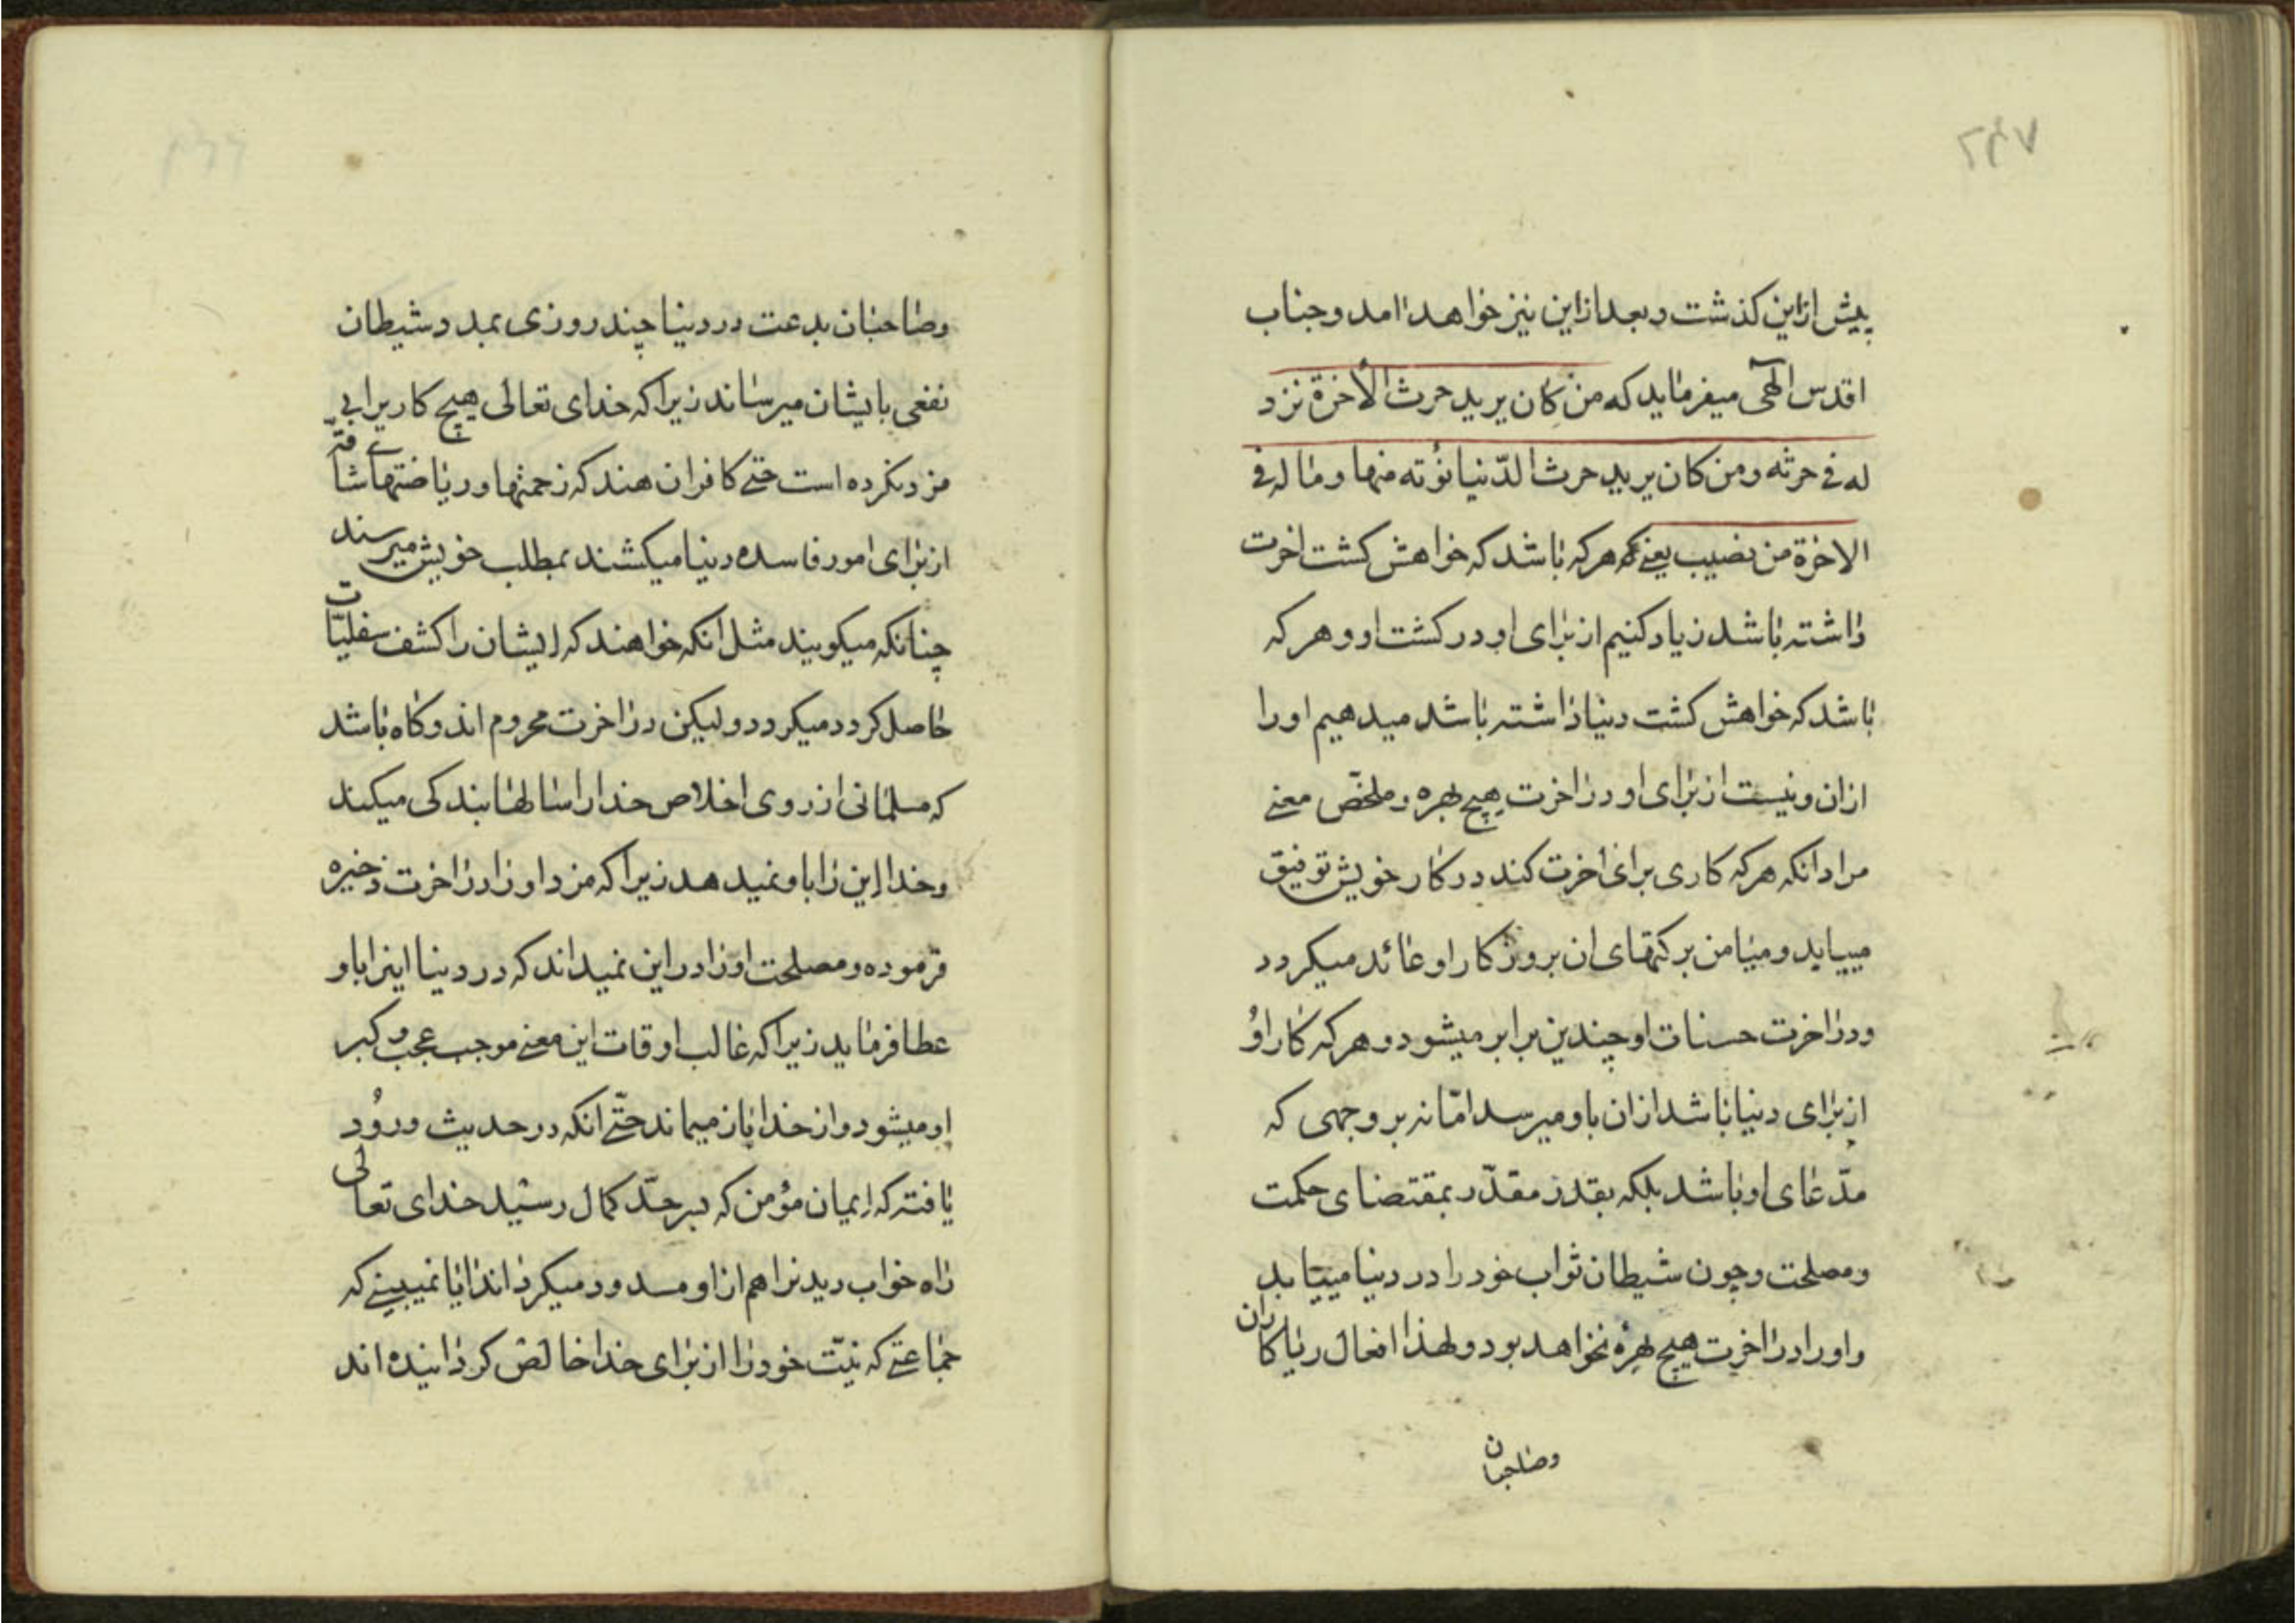 پیش ازین کذشت و بعد ازاین نیز خواهد امد و جناب
اقدس الهی میفرماید که من کان یرید حرث الأخرة نزد
له فی حرثه و من کان یرید حرث الدّنیا نؤته منها و ما له فی
الاخرة من نصیب یعنی که هرکه باشد که خواهش کشت اخرت
داشته باشد زیاد کنیم از برای او در کشت او و هر که
باشد که خواهش کشت دنیا داشته باشد میدهیم او را
ازان و نیست از برای او در اخرت هیچ بهره و ملخّص معنی
مراد انکه هرکه کاری برای اخرت کند در کار خویش توفیق
مییابد و میامن برکتهای ان بروزکار او عائد میکردد
و در اخرت حسنات او چندین برابر میشود و هرکه کار او
از برای دنیا باشد ازان باو میرسد امّا نه بر وجهی که
مدّعای او باشد بلکه بقدر مقدّر بمقتضای حکمت
و مصلحت و چون شیطان ثواب خود را در دنیا مییابد
و او را در اخرت هیچ بهره نخواهد بود و لهذا افعال ریاکاران
وصاحبان
وصاحبان بدعت در دنیا چند روزی بمدد شیطان
نفعی بایشان میرساند زیرا که خدای تعالی هیچ کاریرا بی
مزد نکرده است حتی کافران هند که زحمتها و ریاضتهای شاقّه
از برای امور فاسده دنیا میکشند بمطلب خویش میرسند
چنانکه میکویند مثل انکه خواهند که ایشان را کشف سفلیّات
حاصل کردد میکردد و لیکن در اخرت محروم اند و کاه باشد
که مسلمانی از روی اخلاص خدا را سالها بندکی میکند
و خدا این را باو نمیدهد زیرا که مزد او را در اخرت ذخیره
فرموده و مصلحت او را در این نمیداند که در دنیا اینرا باو
عطا فرماید زیرا که غالب اوقات این معنی موجب عجب و کبر
او میشود و از خدا باز میماند حتّی انکه در حدیث ورود
یافته که ایمان مؤمن که بسرحدّ کمال رسید خدای تعالی
راه خواب دیدنرا هم از او مسدود میکرداند ایا نمیبینی که
جماعتی که نیّت خود را از برای خدا خالص کردانیده اند